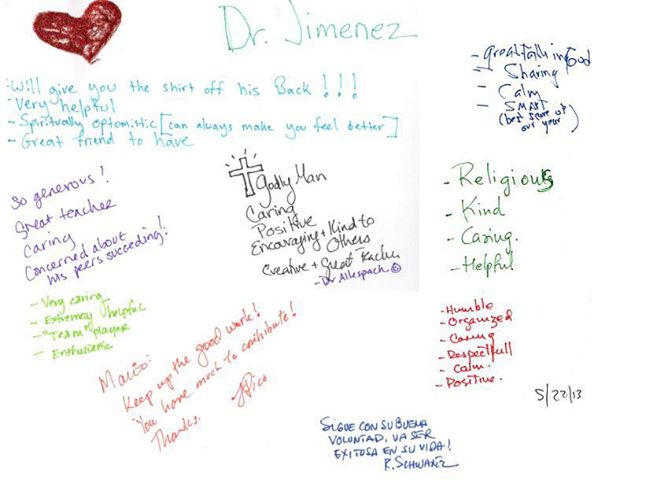 Dr. Jimenez
-Will give you the shirt off his Back!!!
-Very helpful
-Spiritually optomistic [can always make you feel better]
-Great friend to have
-great faith in God
- Sharing
- Calm
- SMART
(best score of
our year)
So generous!
Great teacher
Caring
Concerned about
his peers succeeding!
Godly Man
Caring
Positive
Encouraging + Kind to
Others
Creative + Great Teacher
-Dr Allespach ☺
- Religious
- Kind
- Caring.
- Helpful
- Very caring
- Extremely helpful
- "Team" player
- Enthusiastic
-Humble
-Organized
- Caring
-Respectfull
- Calm.
-Positive.
Mario:
Keep up the good work!
You have much to contribute!
Thanks.
JPico
5/22/13
SIGUE CON SU BUENA
VOLUNTAD, VA SER
EXITOSA EN SU VIDA!
R. SCHWARTZ